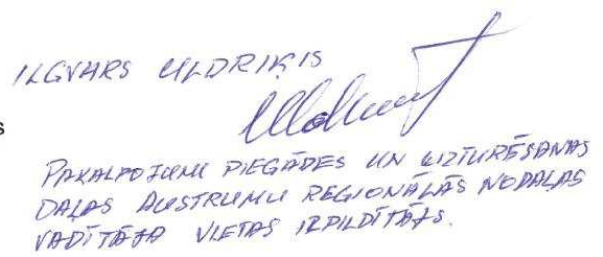 ILGVARS ULDRIĶIS
s
PAKALPOJUMU PIEGĀDES UN UZTURĒŠANAS
DAĻAS AUSTRUMU REGIONĀLĀS NODAĻAS
VADĪTĀJA VIETAS IZPILDĪTĀJS.